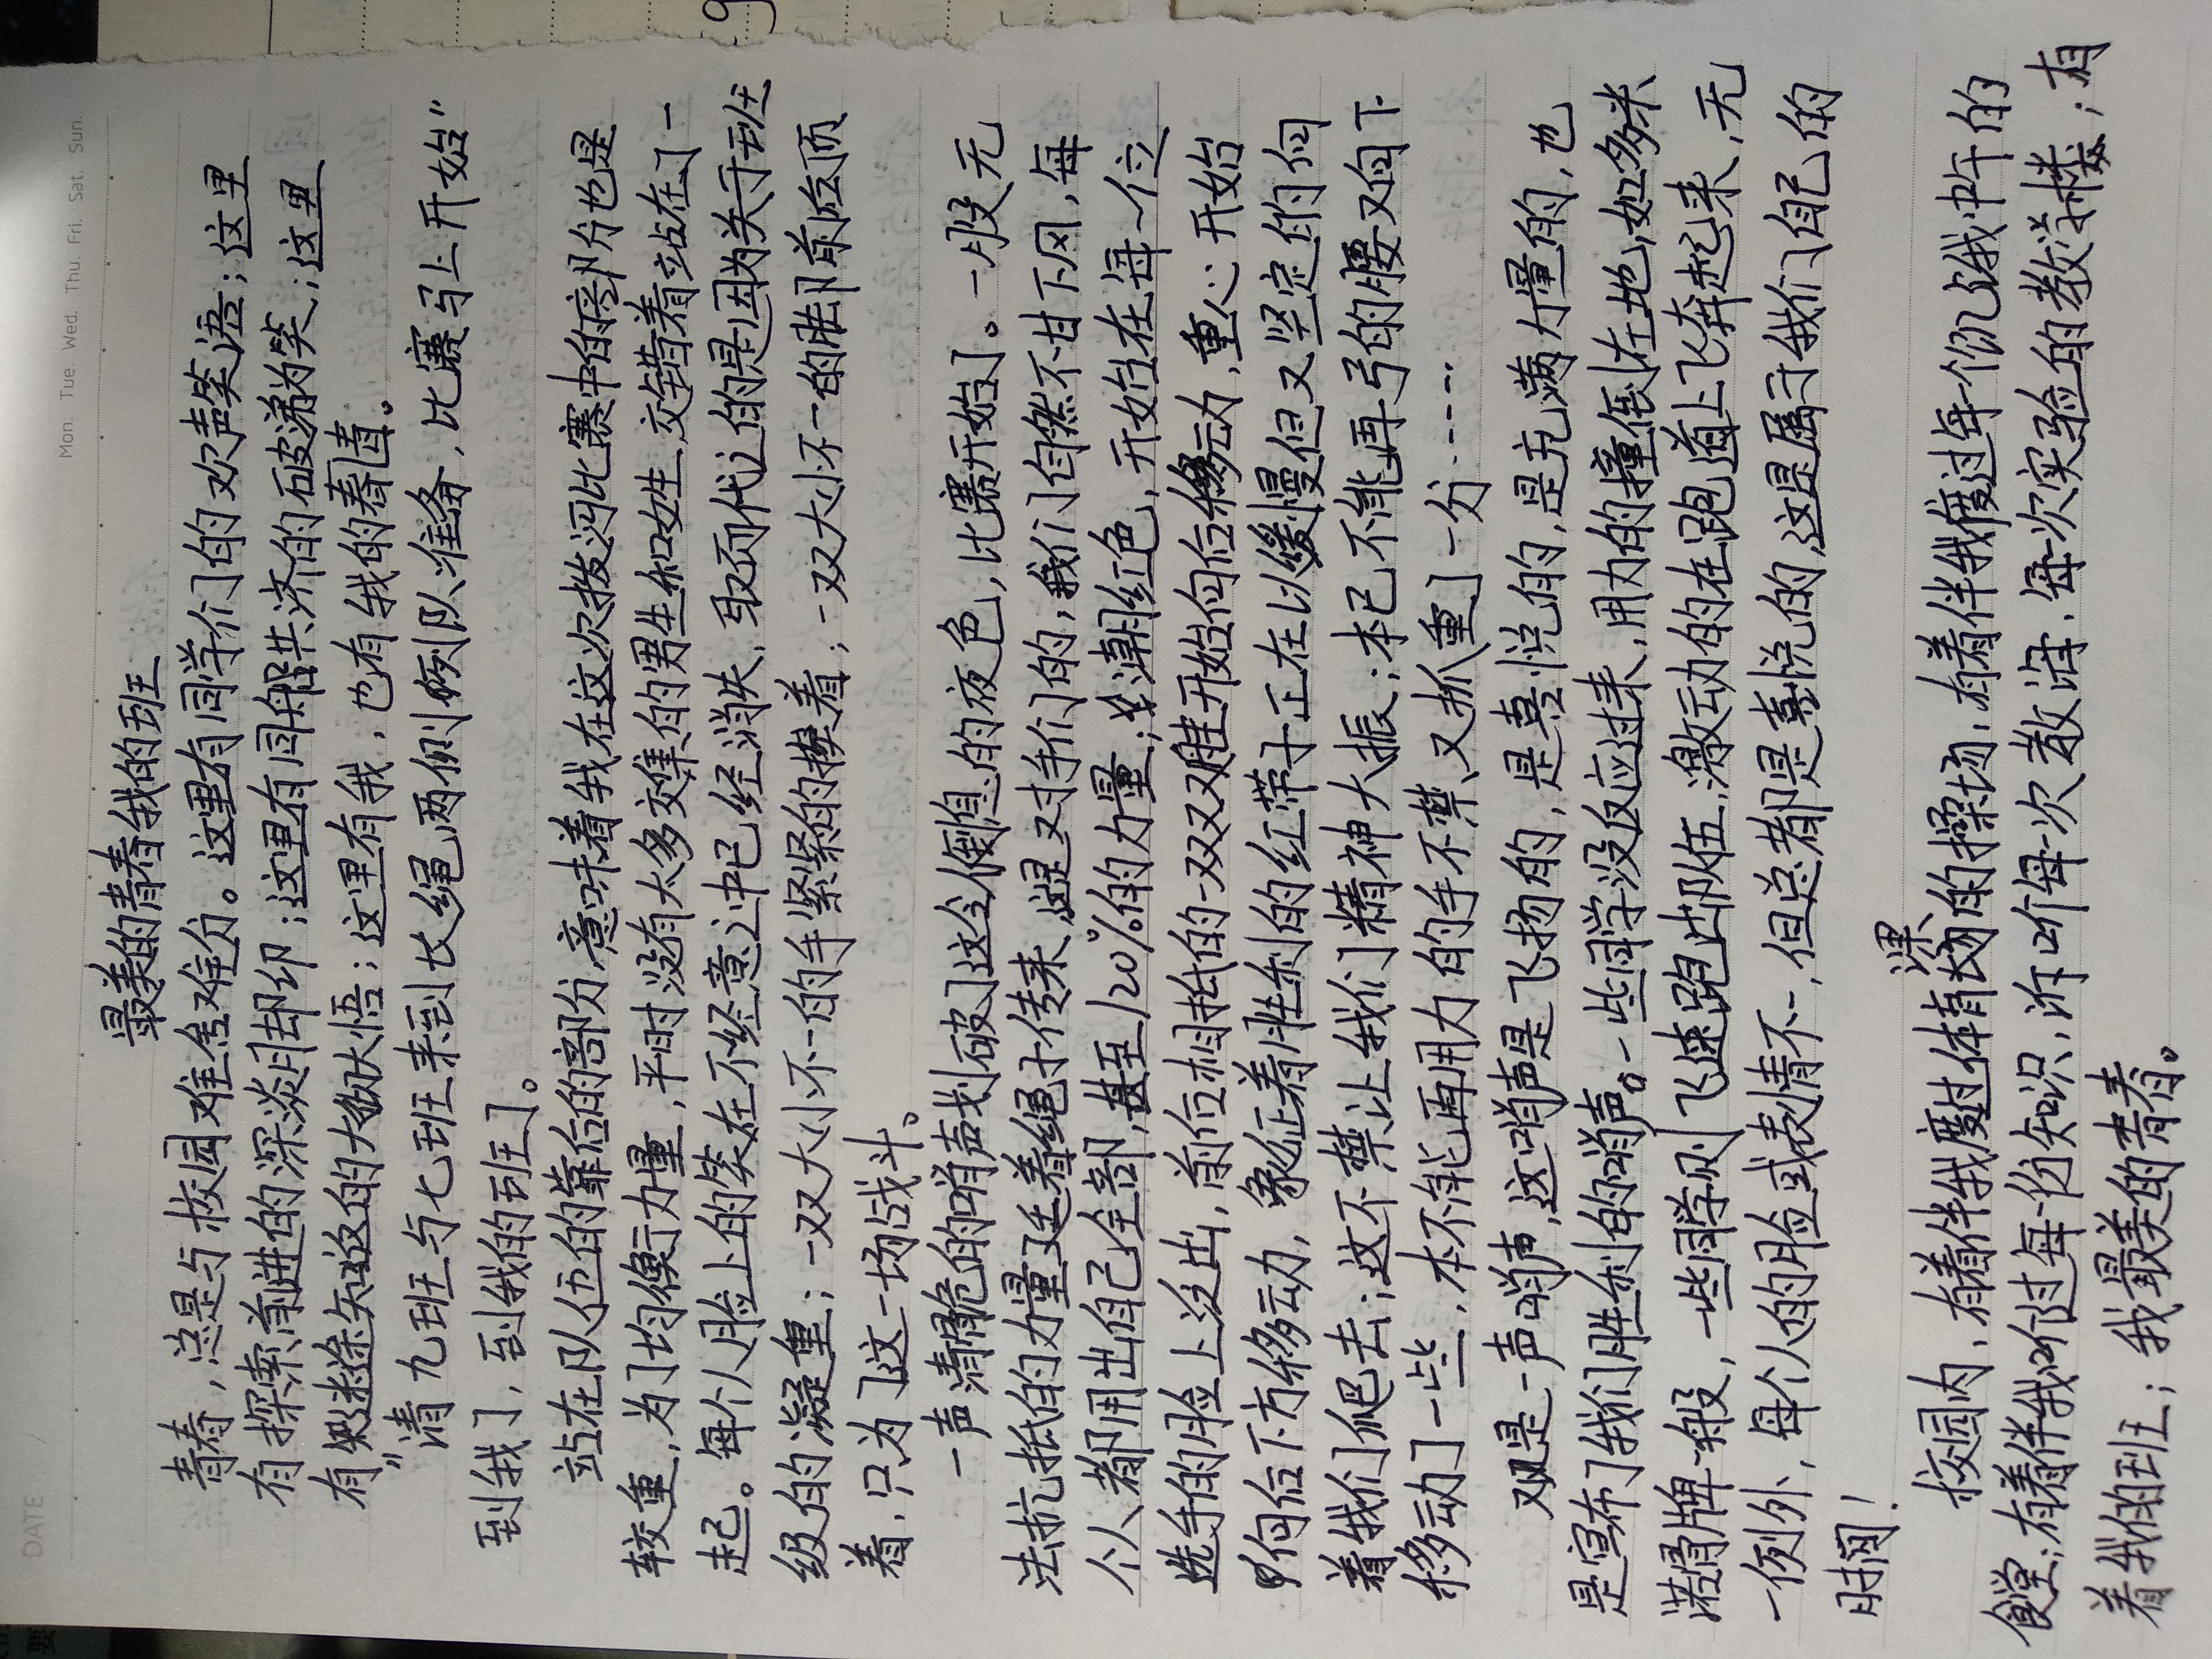 DATE /
Mon. Tue. Wed. Thu. Fri. Sat. Sun.
最美的青春我的班
青春，总是与校园难舍难分。这里有同学们的欢声笑语；这里
有探索前进的深淡月却印；这里有同船共济的破涕为笑；这里
有迷途知返的大彻大悟；这里有我，也有我的春。
"请九班与七班来到长绳两侧列队准备，比赛马上开始"
到我了，到我的班了。
站在队伍的靠后的部分，意味着我在这次拨河比赛中的部分也是
较重，为了均衡力量，平时没有太多交集的男生和女生，交错着站在了一
起。每个人脸上的笑在不经意之中已经消失，取而代之的是因为关于班
级的凝重；一双大小不一的手紧紧的揆着；一双大小不一的脚前后顶
着，只为了这一场战斗。
一声清脆的哨声划破了这令人的夜色，比赛开始了。一股无
法抗抵的力量延着绳子传来，是对手们的，我们自然不甘下风，每
个人都用出自己全部，甚至120%的力量；潮红色，开始在每一位
选手的脸上泛出，前后相抵的一双双腿开始向后移动，重心开始
向后下方移动，象征着胜利的红带子正在以缓慢但又坚定的向
着我们爬去；这不禁让我们精神大振；本已不能再弓的腰又向下
移动了一些，本不能再用力的手不禁又抓重了一分······
又是一声哨声，这哨声是飞扬的，是喜悦的，是充满力量的，也
是宣布了我们胜利的哨声。一些同学没反应过来，用力的撞倒在地，如多米
诺骨牌一般，一些同学则飞速跑出队伍，激动的在跑道上飞奔起来，无
一例外，每个人的脸或表情不一，但总都是喜悦的，这是属于我们自己的
时间！
校园内，有着伴我度过体育课的操场，有着伴我度过每个饥饿中午的
食堂；有着伴我听过每一份知识，许听每一次教诲，每一次实验的教学楼；有
着我的班；我最美的青春。